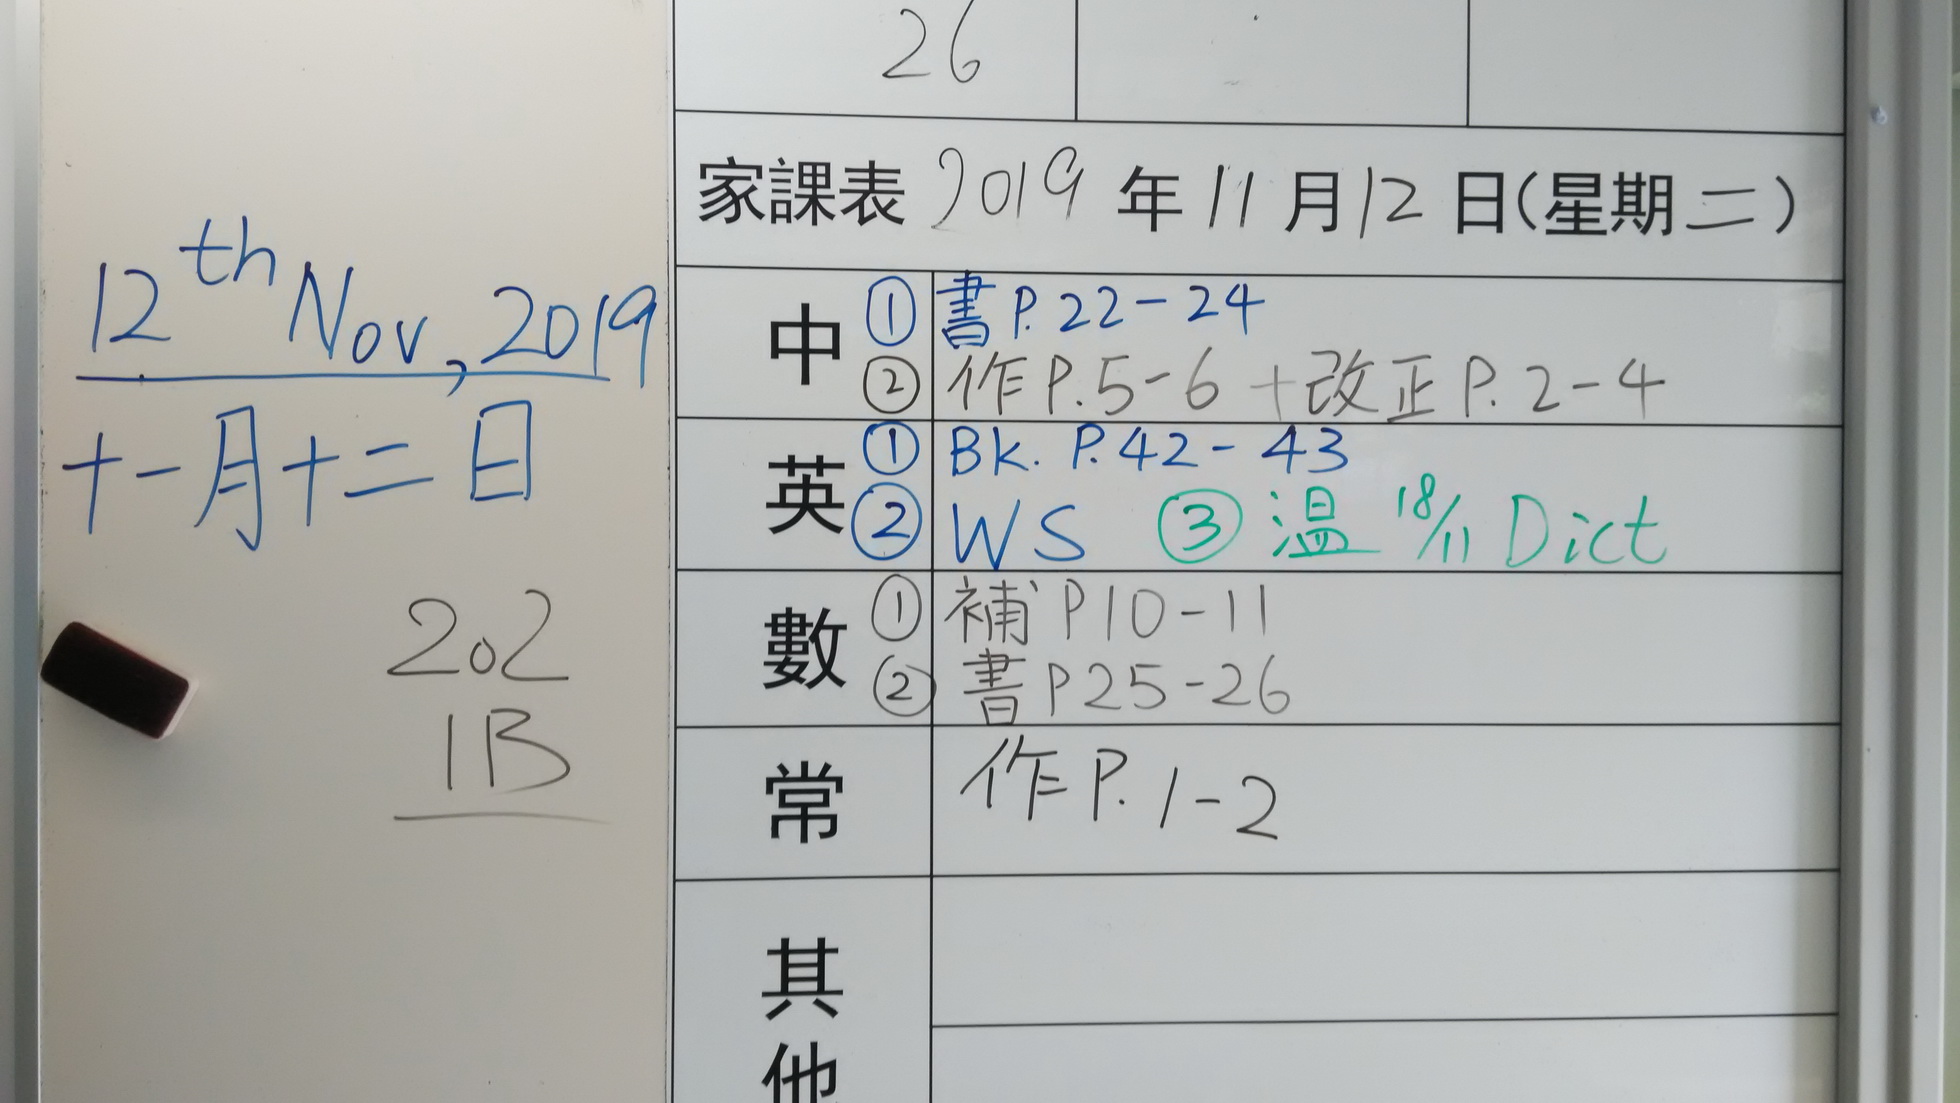 26
家課表 2019 年 11 月 12 日(星期二)
12th Nov, 2019
十一月十二日
202
1B
中 ① 書 P. 22-24
② 作 P. 5-6 + 改正 P. 2-4
英 ① Bk. P. 42-43
② WS ③ 溫 18/11 Dict
數 ① 補 P10-11
② 書 P25-26
常 作 P. 1-2
其他